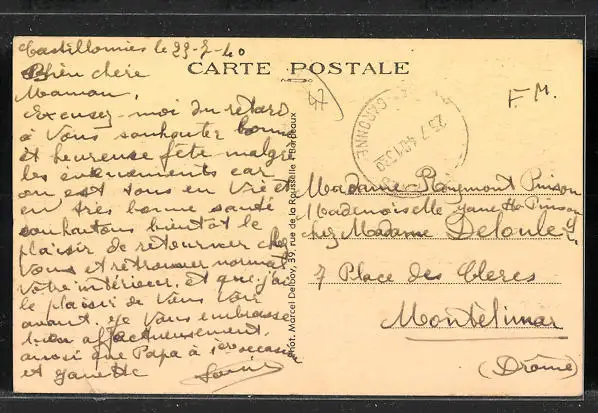 Castillonnès le 23-7-40
Bien chère
Maman,
CARTE POSTALE
47
F. M.
GARONNE
Excusez-moi du retard
à vous souhaiter bonne
et heureuse fête malgré
les évènements car
on est tous en vie et
en très bonne santé
souhaitons bientôt le
plaisir de retourner chez
vous et retrouver
votre intérieur, et que j'ai
le plaisir de vous voir
avant. Je vous embrasse
bien affectueusement,
ainsi que Papa à 1ère occasion
et Ganette
Phot. Marcel Delboy, 39, rue de la Rousselle - Bordeaux
Madame Raymont Pinson
Mademoiselle Pinson
chez Madame Deloule
7 Place des Clercs
Montélimar
(Drôme)